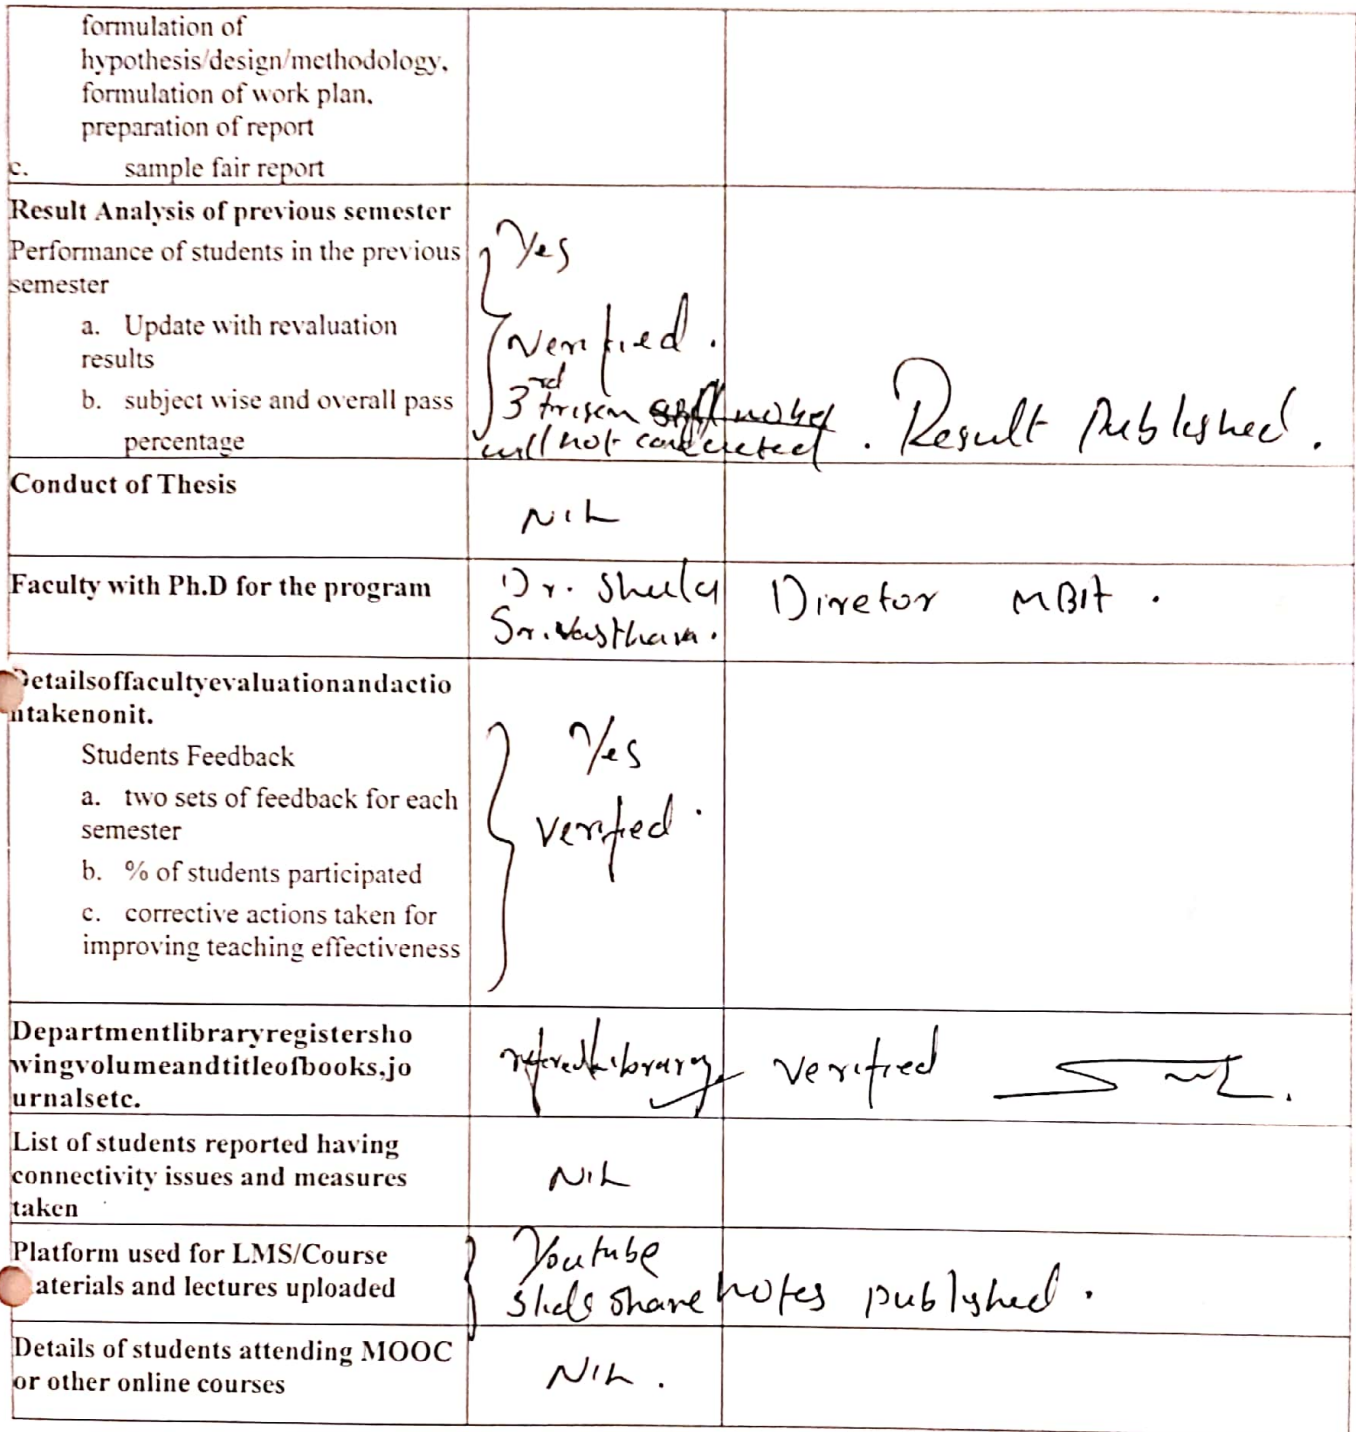 formulation of
hypothesis/design/methodology,
formulation of work plan,
preparation of report
c. sample fair report
Result Analysis of previous semester
Performance of students in the previous
semester
a. Update with revaluation
results
b. subject wise and overall pass
percentage
Yes
Verified.
3rd trisem
will not conducted. Result Published.
Conduct of Thesis
NIL
Faculty with Ph.D for the program
Dr. Sheela Diretor MBIT.
Detailsoffacultyevaluationandactio
ntakenonit.
Students Feedback
a. two sets of feedback for each
semester
b. % of students participated
c. corrective actions taken for
improving teaching effectiveness
Yes
verified.
Departmentlibraryregistersho
wingvolumeandtitleofbooks,jo
urnalsetc.
library verified
List of students reported having
connectivity issues and measures
taken
NIL
Platform used for LMS/Course
aterials and lectures uploaded
Youtube
Slide share notes published.
Details of students attending MOOC
or other online courses
NIL.